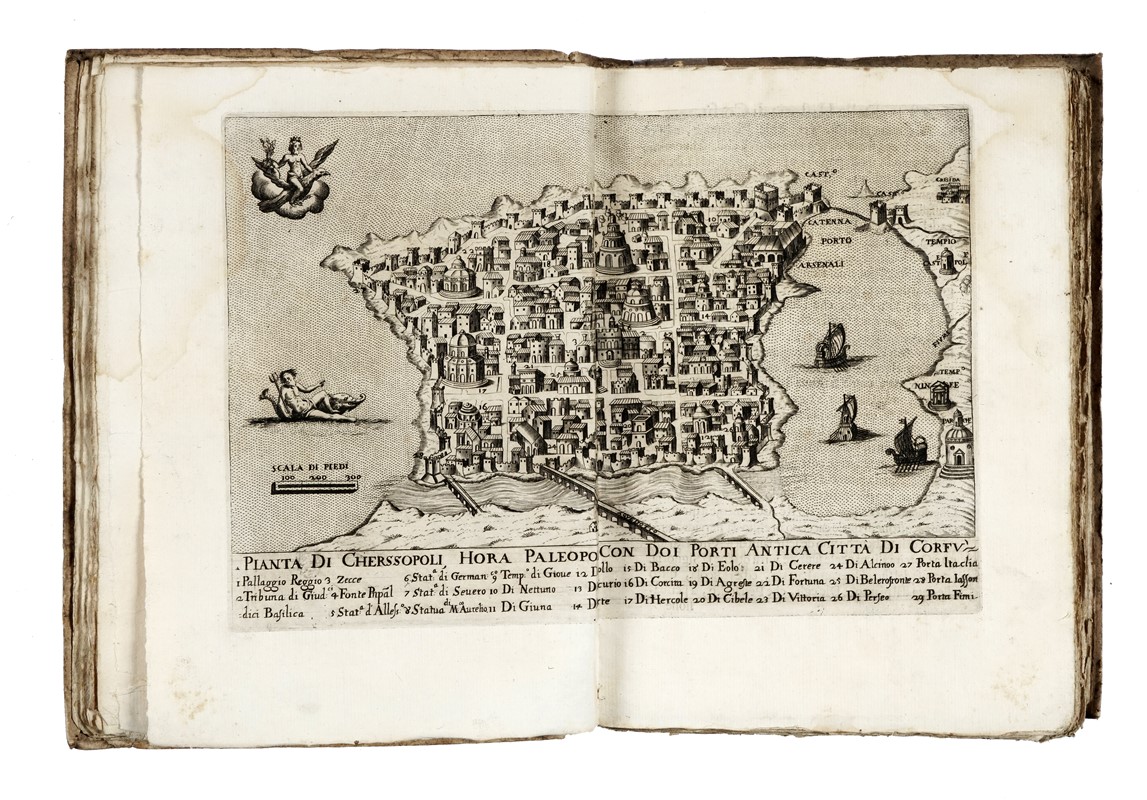 CAST.º
CAST.º
CATENNA
PORTO
ARSENALI
TEMPIO
CAST POL
TEMP.º
NIN FE
16
17
14
SCALA DI PIEDI
100 200 300
PIANTA DI CHERSSOPOLI HORA PALEOPO CON DOI PORTI ANTICA CITTÀ DI CORFV
1 Pallaggio Reggio 3 Zecce 6 Stat.ª di German.º 9 Temp.º di Gioue 12 D ollo 15 Di Bacco 18 Di Eolo 21 Di Cerere 24 Di Alcinoo 27 Porta Itaclia
2 Tribuna di Giud 4 Fonte Pupal 7 Stat.ª di Seuero 10 Di Nettuno 13 D curio 16 Di Corcira 19 Di Agreste 22 Di Fortuna 25 Di Belerofronte 28 Porta Iasson
dici Basilica 5 Stat.ª d'Alless.º 8 Statua di M. Aurelio 11 Di Giuna 14 D rte 17 Di Hercole 20 Di Cibele 23 Di Vittoria 26 Di Perseo 29 Porta Fimi